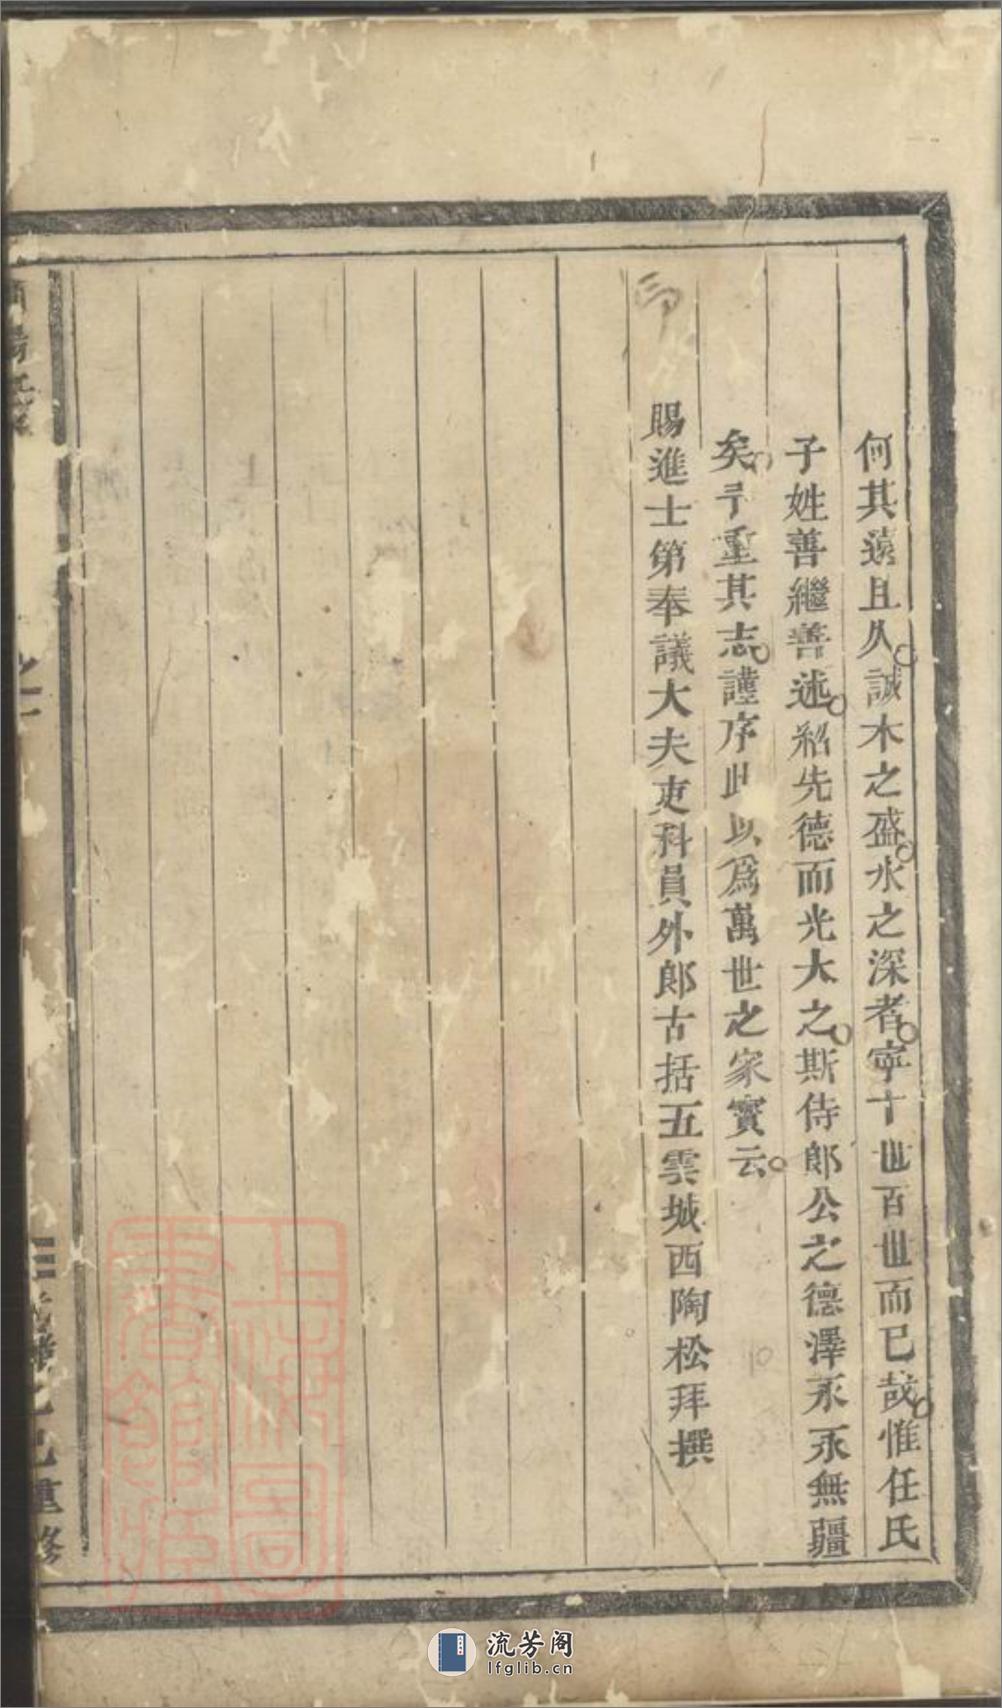 何其遠且久誠木之盛水之深者寧十世百世而已哉惟任氏
子姓善繼善述紹先德而光大之斯侍郎公之德澤永永無疆
矣予重其志謹序此以爲萬世之家寶云
賜進士第奉議大夫吏科員外郎古括五雲城西陶松拜撰
己巳重修
上海圖書館藏
流芳阁
lfglib.cn